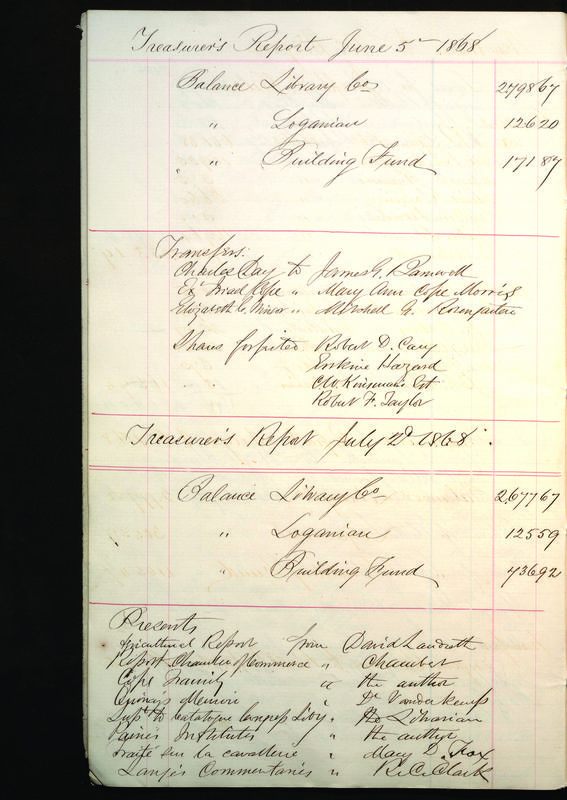 Treasurer's Report June 5th 1868
Balance Library Co 2798 67
" Loganian 126 20
" Building Fund 171 87
Transfers:
Charles Day to James G. Barnwell
Exr Israel Cope " Mary Ann Cope Morris
Elizabeth C. Minor " Mitchell G. Rosengarten
Shares forfeited Robert D. Cary
Erskine Hazard
Kinsman's Est
Robert F. Taylor
Treasurer's Report July 2d 1868.
Balance Library Co 2,677 67
" Loganian 125 59
" Building Fund 736 92
Presents
Agricultural Report from David Landreth
Report Chamber of Commerce " Chamber
Cope Family " the author
Quincy's Memoir " Dr Vanderkemp
Supt to Catalogue Congress Liby. " the Librarian
Paine's Institutes " the author
Traité sur la cavallerie " Mary D. Fox
Lange's Commentaries " R. C. Clark